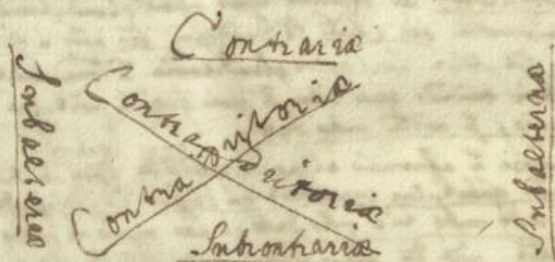 Contrariæ
Subalternæ
Contradictoriæ
Contradictoriæ
Subalternæ
Subcontrariæ